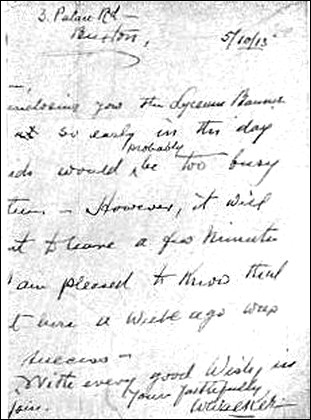 3. Palace Rd
Buxton,
5/10/13
inclosing you the Lyceum Banner
so early in the day
would probably be too busy
However, it will
a few minutes
am pleased to know that
here a week ago was
success
With every good wish,
Yours faithfully,